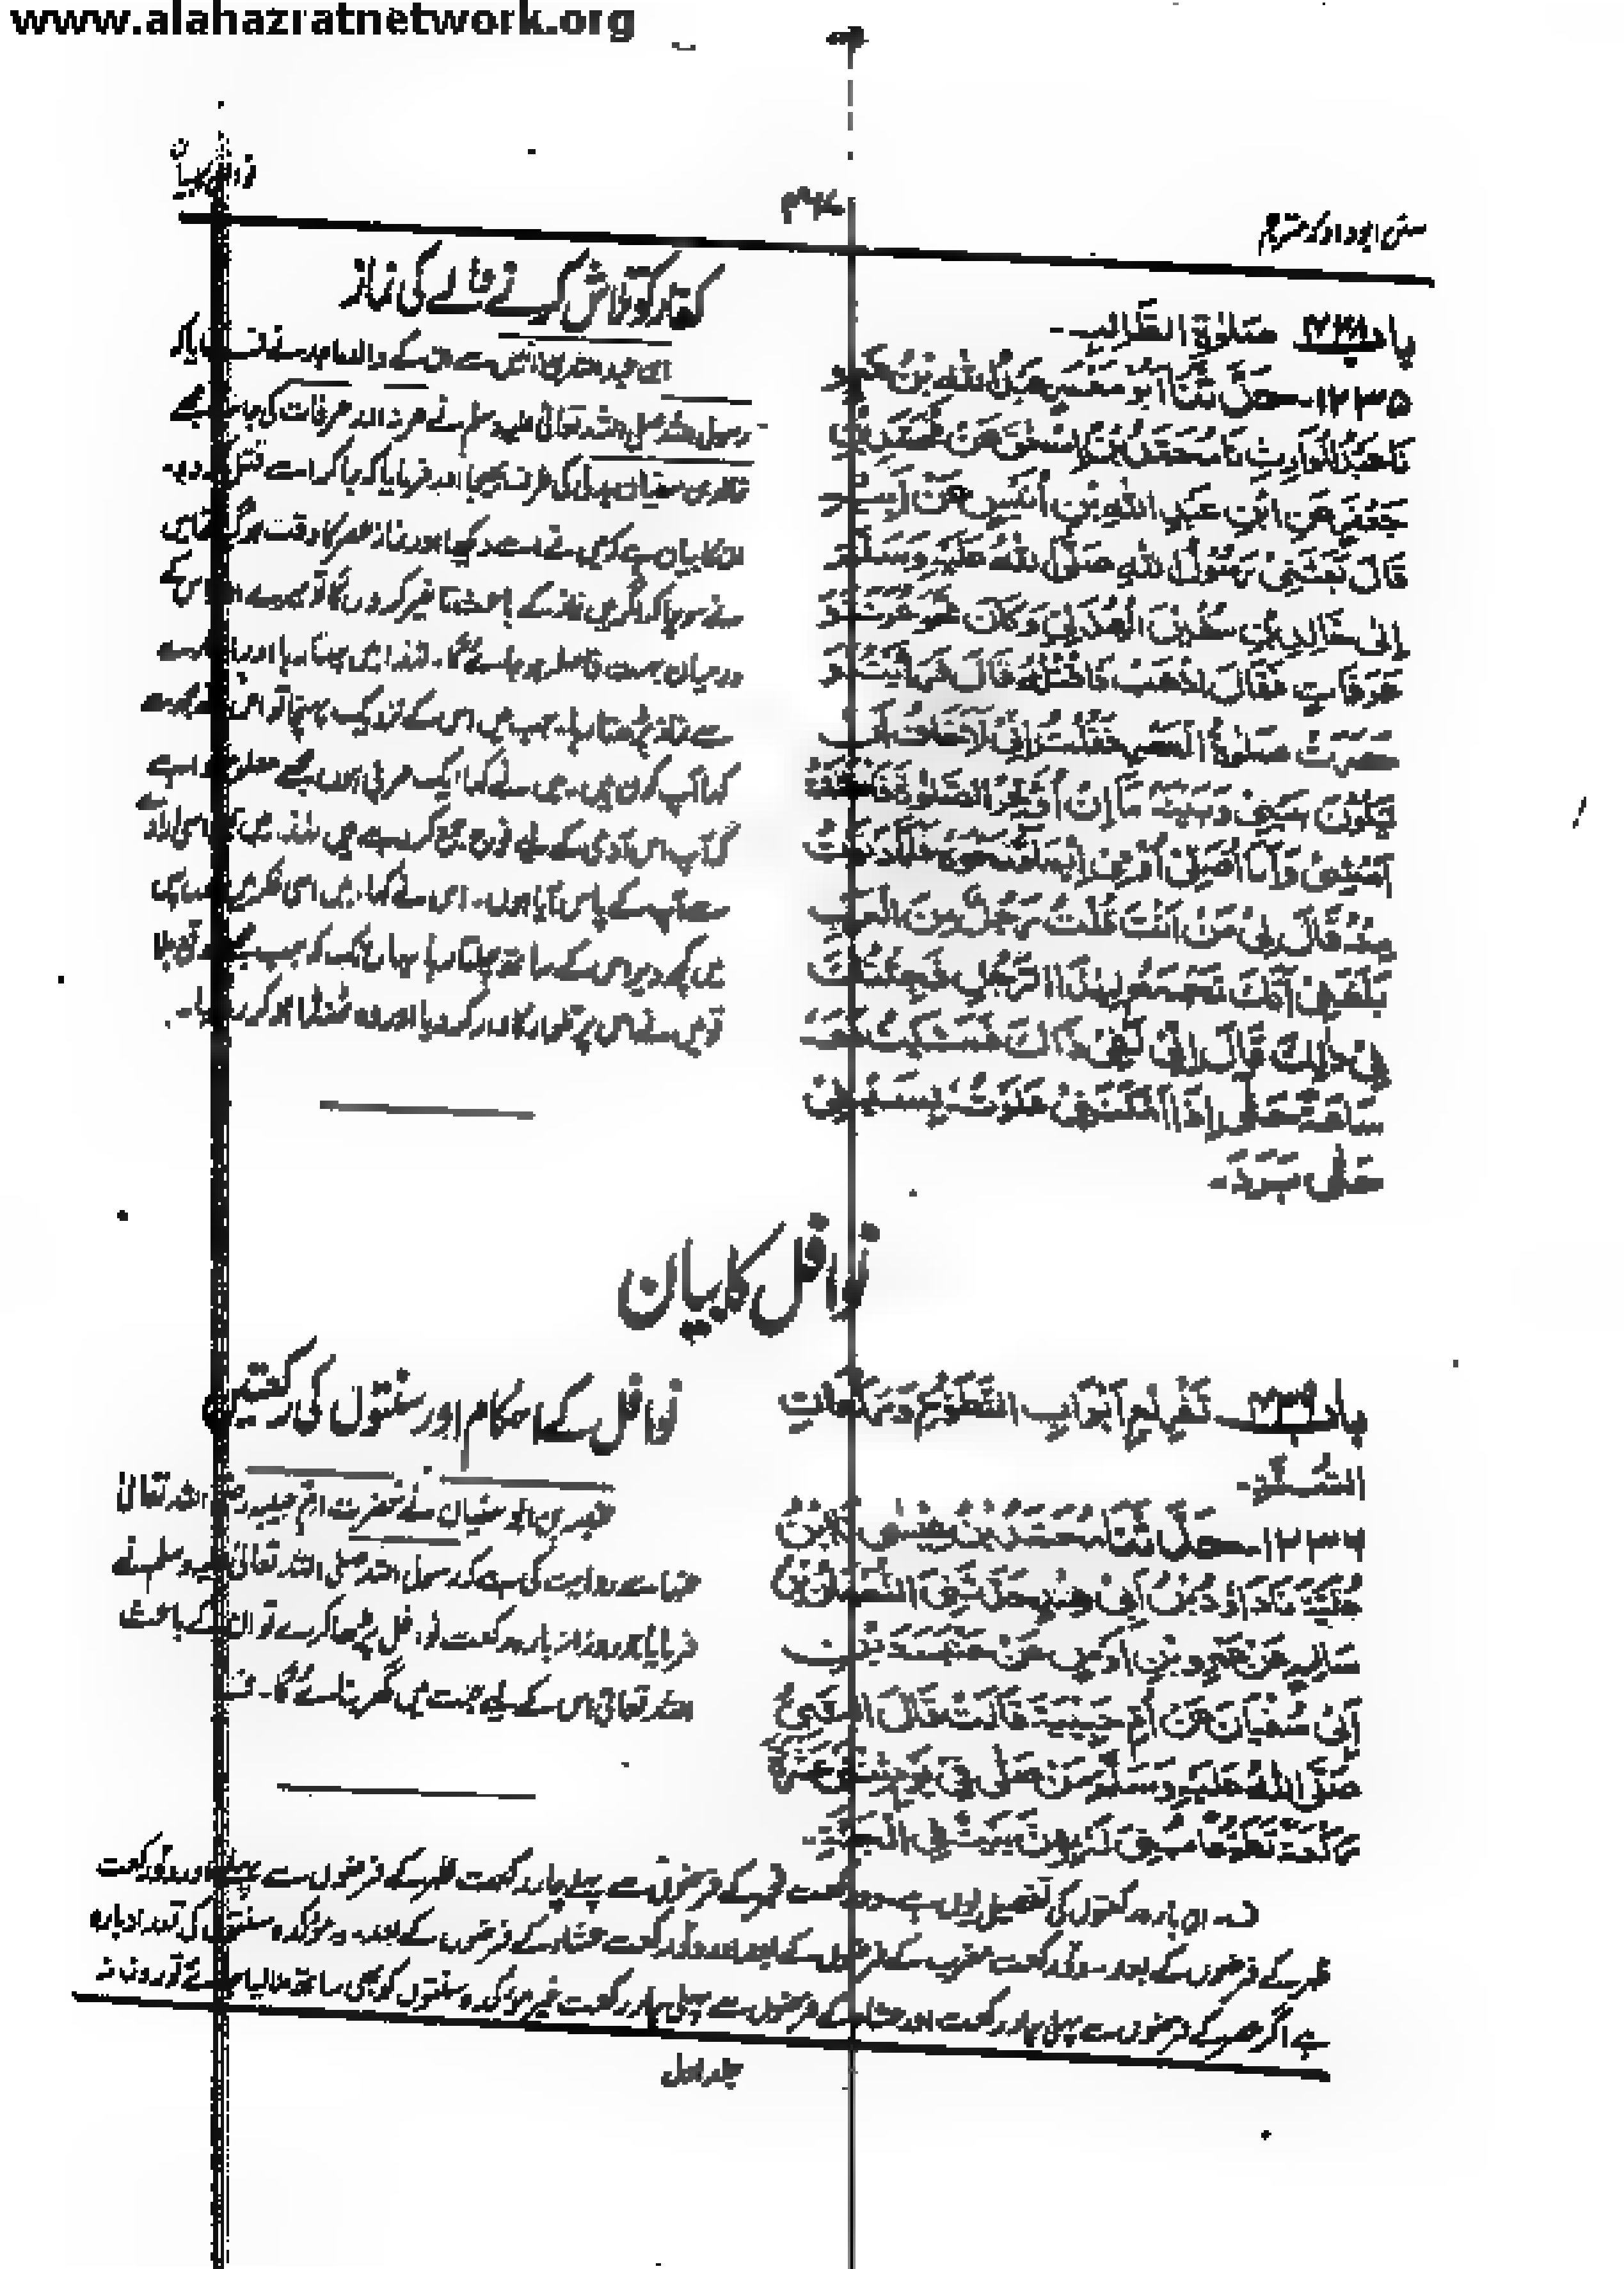 www.alahazratnetwork.org
سنن ابوداؤد مترجم
نوافل کا بیان
باب صلوٰة الطالب
۱۲۳۵۔ حَدَّثَنَا أَبُو مَعْمَرٍ عَبْدُ اللهِ بْنُ عَمْرٍو
نَا عَبْدُ الْوَارِثِ نَا مُحَمَّدُ بْنُ إِسْحٰقَ عَنْ مُحَمَّدِ بْنِ
جَعْفَرٍ عَنِ ابْنِ عَبْدِ اللهِ بْنِ أُنَيْسٍ عَنْ أَبِيهِ
قَالَ بَعَثَنِي رَسُولُ اللهِ صَلَّى اللهُ عَلَيْهِ وَسَلَّمَ
إِلٰى خَالِدِ بْنِ سُفْيٰنَ الْهُذَلِيِّ وَكَانَ نَحْوَ عُرَنَةَ وَ
عَرَفَاتٍ فَقَالَ اذْهَبْ فَاقْتُلْهُ قَالَ فَرَأَيْتُهُ وَ
حَضَرَتْ صَلٰوةُ الْعَصْرِ فَقُلْتُ إِنِّي لَأَخَافُ أَنْ
يَكُونَ بَيْنِي وَبَيْنَهُ مَا إِنْ أُؤَخِّرُ الصَّلٰوةَ فَانْطَلَقْتُ
أَمْشِي وَأَنَا أُصَلِّي أُومِئُ إِيمَاءً نَحْوَهُ فَلَمَّا دَنَوْتُ
مِنْهُ قَالَ لِي مَنْ أَنْتَ قُلْتُ رَجُلٌ مِنَ الْعَرَبِ
بَلَغَنِي أَنَّكَ تَجْمَعُ لِهٰذَا الرَّجُلِ فَجِئْتُكَ
فِي ذَاكَ قَالَ إِنِّي لَفِي ذَاكَ فَمَشَيْتُ مَعَهُ
سَاعَةً حَتّٰى إِذَا أَمْكَنَنِي عَلَوْتُهُ بِسَيْفِي
حَتّٰى بَرَدَ۔
کفار کو تلاش کرنے والے کی نماز
ابن عبداللہ بن انیس سے ان کے والد ماجد نے فرمایا کہ
رسول اللہ صلی اللہ تعالیٰ علیہ وسلم نے عرنہ اور عرفات کی جانب مجھے
خالد بن سفیان ہذلی کی طرف بھیجا اور فرمایا کہ جا کر اسے قتل کر دو۔
ان کا بیان ہے کہ میں نے اسے دیکھا اور نماز عصر کا وقت ہو گیا تھا میں
نے سوچا کہ اگر میں نماز کے باعث تاخیر کروں گا تو میرے اور اس کے
درمیان بہت فاصلہ ہو جائے گا۔ لہٰذا میں چلتا رہا اور اشارے
سے نماز پڑھتا رہا۔ جب میں اس کے نزدیک پہنچا تو اس نے مجھ سے
کہا آپ کون ہیں۔ میں نے کہا ایک عربی ہوں مجھے معلوم ہوا ہے
کہ آپ اس آدمی کے لیے فوج جمع کر رہے ہیں لہٰذا میں
سے آپ کے پاس آیا ہوں۔ اس نے کہا، میں اسی فکر میں ہوں پس
میں کچھ دیر اس کے ساتھ چلتا رہا یہاں تک کہ جب مجھے موقع ملا
تو میں نے اس پر تلوار کا وار کر دیا اور وہ ٹھنڈا ہو کر رہ گیا۔
نوافل کا بیان
باب تَفْرِيعِ أَبْوَابِ التَّطَوُّعِ وَرَكَعَاتِ
السُّنَّةِ۔
۱۲۳۶۔ حَدَّثَنَا مُحَمَّدُ بْنُ عِيسٰى نَا ابْنُ
عُلَيَّةَ نَا دَاوُدُ بْنُ أَبِي هِنْدٍ حَدَّثَنِي النُّعْمَانُ بْنُ
سَالِمٍ عَنْ عَمْرِو بْنِ أَوْسٍ عَنْ عَنْبَسَةَ بْنِ
أَبِي سُفْيَانَ عَنْ أُمِّ حَبِيبَةَ قَالَتْ قَالَ النَّبِيُّ
صَلَّى اللهُ عَلَيْهِ وَسَلَّمَ مَنْ صَلّٰى فِي يَوْمٍ ثِنْتَيْ عَشْرَةَ
رَكْعَةً تَطَوُّعًا بُنِيَ لَهُ بِهِنَّ بَيْتٌ فِي الْجَنَّةِ۔
نوافل کے احکام اور سنتوں کی رکعتیں
عنبسہ بن ابو سفیان نے حضرت ام حبیبہ رضی اللہ تعالیٰ
عنہا سے روایت کی ہے کہ رسول اللہ صلی اللہ تعالیٰ علیہ وسلم نے
فرمایا جو روزانہ بارہ رکعت نوافل پڑھا کرے تو ان کے باعث
اللہ تعالیٰ اس کے لیے جنت میں گھر بنائے گا۔ ف
ف۔ ان بارہ رکعتوں کی تفصیل یوں ہے۔ دو رکعت فجر کے فرضوں سے پہلے چار رکعت ظہر کے فرضوں سے پہلے اور دو رکعت
ظہر کے فرضوں کے بعد۔ دو رکعت مغرب کے فرضوں کے بعد اور دو رکعت عشاء کے فرضوں کے بعد۔ یہ مؤکدہ سنتوں کی تعداد بارہ
ہے اگر عصر کے فرضوں سے پہلی چار رکعت اور عشاء کے فرضوں سے پہلی چار رکعت غیر مؤکدہ سنتوں کو بھی ساتھ ملا لیا جائے تو روزانہ
جلد اول